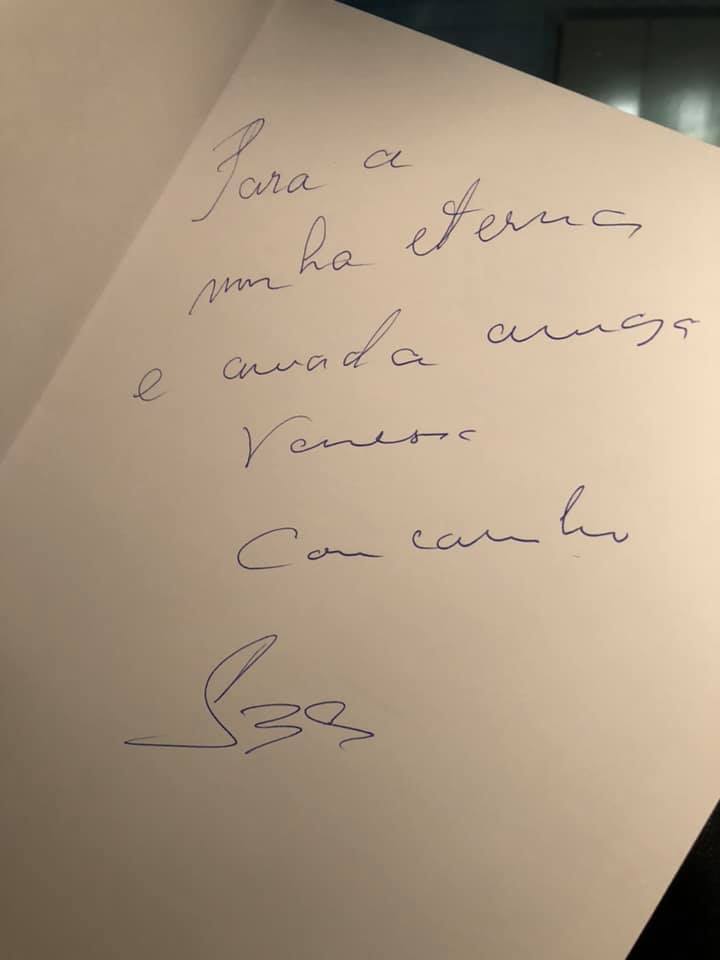 Para a
minha eterna
e amada amiga
Vanessa
Com carinho